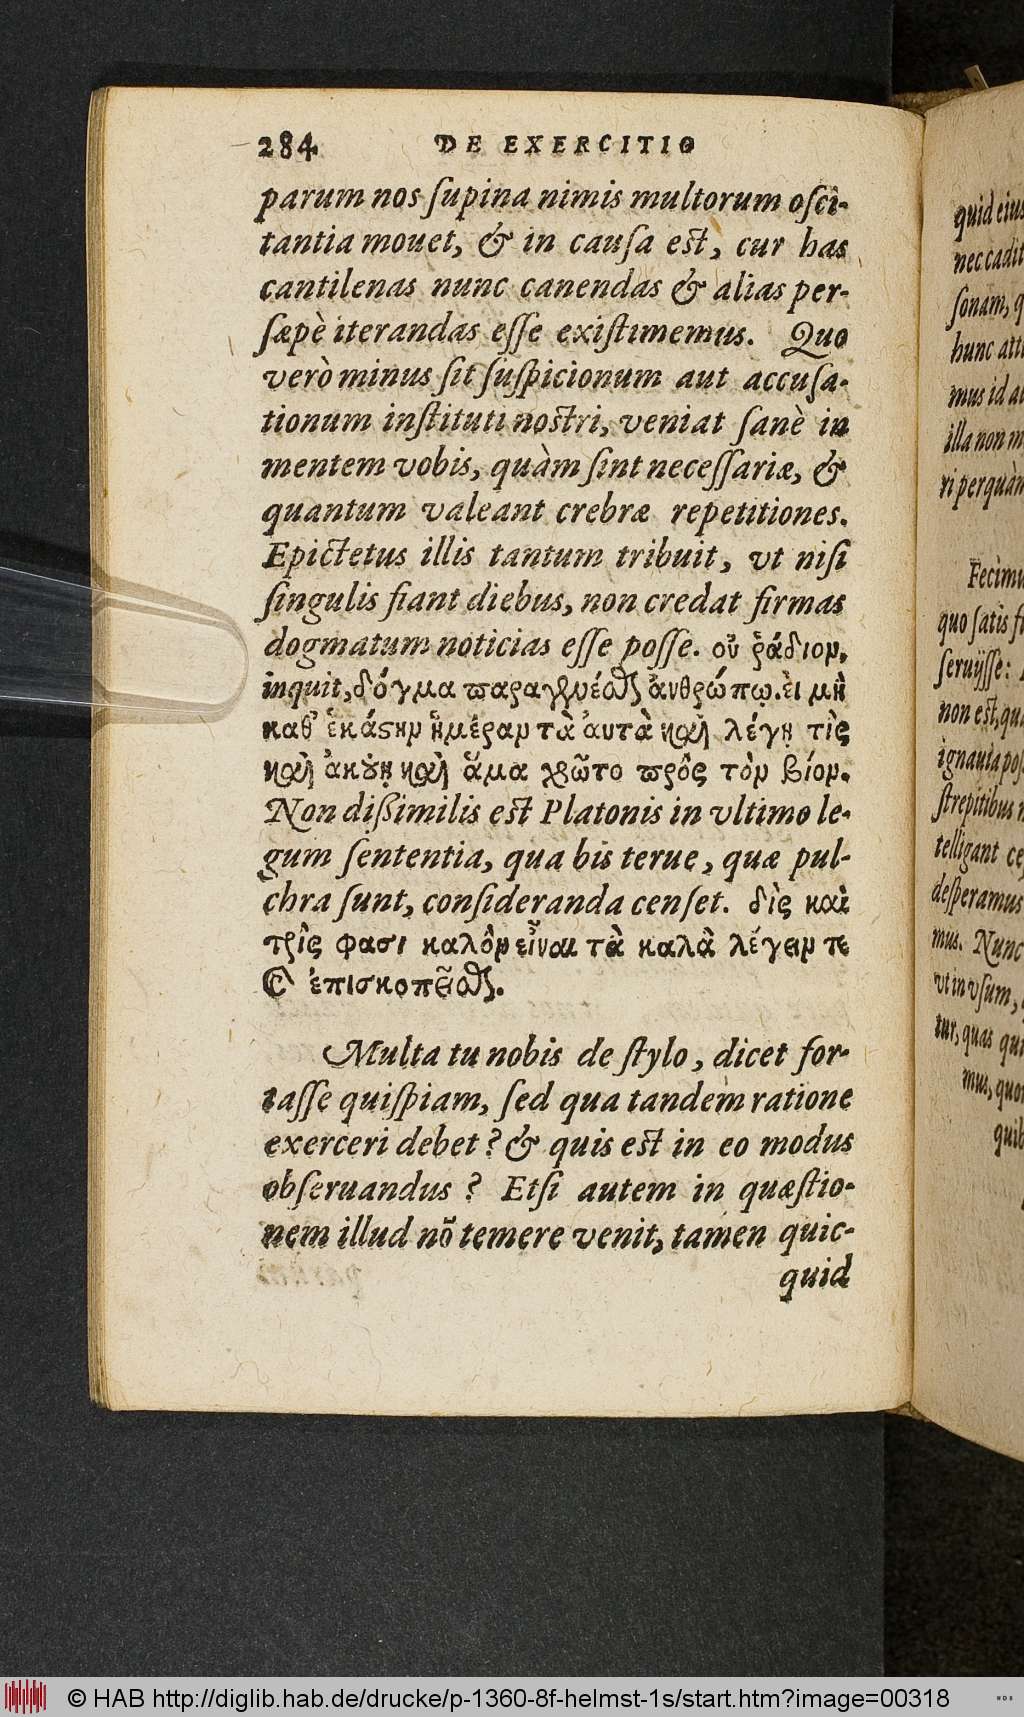 284 DE EXERCITIO
parum nos ſupina nimis multorum oſci-
tantia mouet, & in cauſa est, cur has
cantilenas nunc canendas & alias per-
ſæpè iterandas eſſe exiſtimemus. Quo
verò minus ſit ſuſpicionum aut accuſa-
tionum inſtituti nostri, veniat ſanè in
mentem vobis, quàm ſint neceſſariæ, &
quantum valeant crebræ repetitiones.
Epictetus illis tantum tribuit, vt niſi
ſingulis fiant diebus, non credat firmas
dogmatum noticias eſſe poſſe. οὐ ῥάδιον,
inquit, δόγμα παραγενέσθαι ἀνθρώπῳ. ἐι μὴ
καθ' ἑκάστην ἡμέραν τὰ ἀυτὰ καὶ λέγῃ τὶς
καὶ ἀκούῃ καὶ ἅμα χρῶτο πρὸς τὸν βίον.
Non dißimilis est Platonis in vltimo le-
gum ſententia, qua bis terue, quæ pul-
chra ſunt, conſideranda cenſet. δὶς καὶ
τρὶς φασι καλὸν εἶναι τὰ καλὰ λέγειν τε
καὶ ἐπισκοπεῖσθαι.
Multa tu nobis de ſtylo, dicet for-
taſſe quiſpiam, ſed qua tandem ratione
exerceri debet? & quis est in eo modus
obſeruandus? Etſi autem in quæſtio-
nem illud nõ temere venit, tamen quic-
quid
quid eius
nec cadit
ſonam, q
hunc atti
mus id au
illa non m
ri perquàm
Fecimu
quo ſatis fi
ſeruijſſe:
non est, qu
ignauia poſ
ſtrepitibus n
telligant cep
deſperamus
mus. Nunc
vt in vſum,
tur, quas qui
mus, quon
quib
© HAB http://diglib.hab.de/drucke/p-1360-8f-helmst-1s/start.htm?image=00318